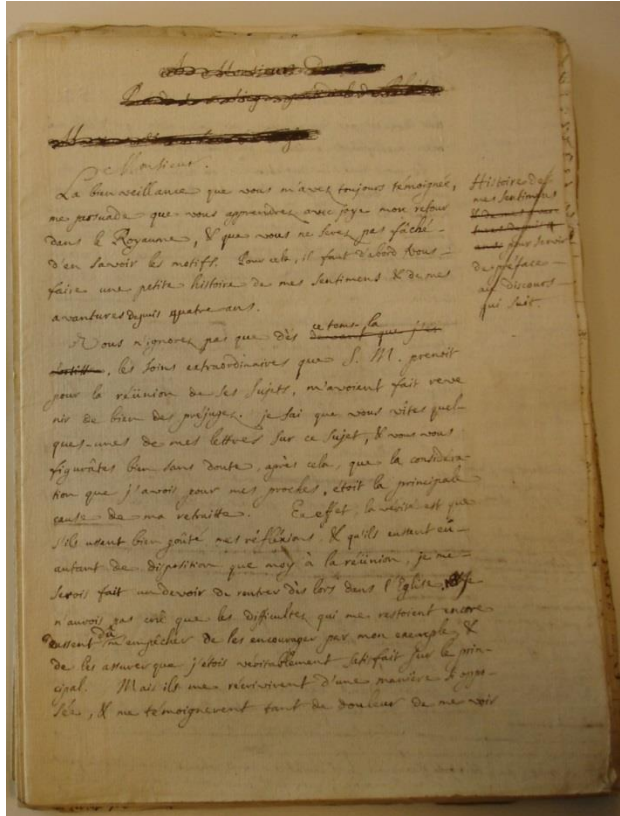 Monsieur.
La bienveillance que vous m'avez toujours témoignée,
me persuade que vous apprendrez avec joye mon retour
dans le Royaume, & que vous ne serez pas fâché
d'en savoir les motifs. Pour cela, il faut d'abord vous
faire une petite histoire de mes sentimens & de mes
avantures depuis quatre ans.
Vous n'ignorez pas que dès ce tems-la
les soins extraordinaires que S. M. prenoit
pour la réünion de ses sujets, m'avoient fait reve
nir de bien des préjugez. je sai que vous vîtes quel-
ques-unes de mes lettres sur ce sujet, & vous vous
figurâtes bien sans doute, après cela, que la considera
tion que j'avois pour mes proches, étoit la principale
cause de ma retraitte. En effet, la vérité est que
s'ils eussent bien goûté mes réfléxions, & qu'ils eussent eû
autant de disposition que moy à la réünion, je me
serois fait un devoir de rentrer dès lors dans l'Eglise
n'aurois pas crû que les difficultez qui me restoient encore
eussent dû m'empêcher de les encourager par mon exemple, &
de les assurer que j'étois véritablement satisfait sur le prin-
cipal. Mais ils me récrivirent d'une manière si oppo-
sée, & me témoignerent tant de douleur de me voir
Histoire de
mes sentimens
pour servir
de préface
au discours
qui suit.